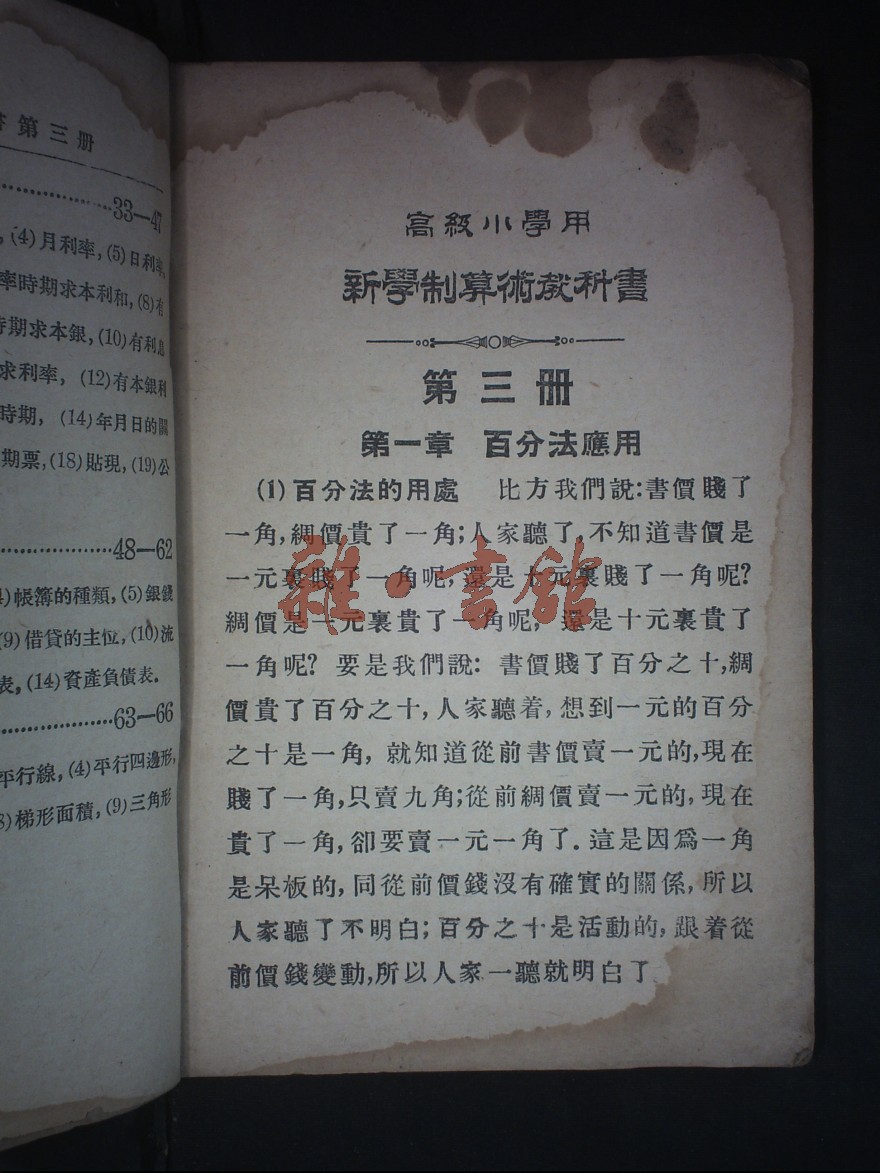 書第三册
33—47
(4)月利率,(5)日利率,
率時期求本利和,(8)有
時期求本銀,(10)有利息
求利率, (12)有本銀利
時期, (14)年月日的關
期票,(18)貼現,(19)公
48—62
帳簿的種類,(5)銀錢
(9)借貸的主位,(10)流
表,(14)資產負債表.
63—66
平行線,(4)平行四邊形,
梯形面積,(9)三角形
高級小學用
新學制算術教科書
第三册
第一章 百分法應用
(1)百分法的用處 比方我們說:書價賤了
一角,綢價貴了一角;人家聽了,不知道書價是
一元裏賤了一角呢,還是十元裏賤了一角呢?
綢價是一元裏貴了一角呢, 還是十元裏貴了
一角呢? 要是我們說: 書價賤了百分之十,綢
價貴了百分之十,人家聽着,想到一元的百分
之十是一角, 就知道從前書價賣一元的,現在
賤了一角,只賣九角;從前綢價賣一元的,現在
貴了一角,卻要賣一元一角了.這是因爲一角
是呆板的,同從前價錢沒有確實的關係,所以
人家聽了不明白;百分之十是活動的,跟着從
前價錢變動,所以人家一聽就明白了
雜·書館